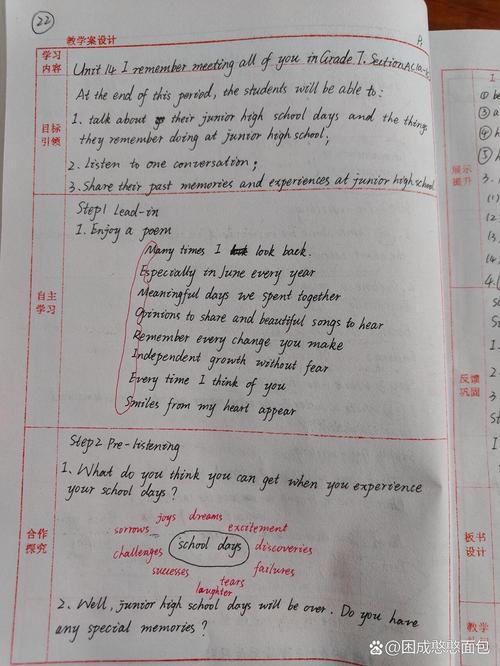 22
教学案设计
学习内容
Unit 14 I remember meeting all of you in Grade 7. Section A
目标引领
At the end of this period, the students will be able to:
1. talk about their junior high school days and the things
they remember doing at junior high school;
2. Listen to one conversation;
3. Share their past memories and experiences at junior high school
自主学习
Step1 Lead-in
1. Enjoy a poem
Many times I look back.
Especially in June every year
Meaningful days we spent together
Opinions to share and beautiful songs to hear
Remember every change you make
Independent growth without fear
Every time I think of you
Smiles from my heart appear
合作探究
Step2 Pre-listening
1. What do you think you can get when you experience
your school days?
joys dreams
sorrows excitement
challenges school days discoveries
successes failures
tears
laughter
2. Well, junior high school days will be over. Do you have
any special memories?
展示提升
反馈巩固
板书设计
教学
@困成憨憨面包